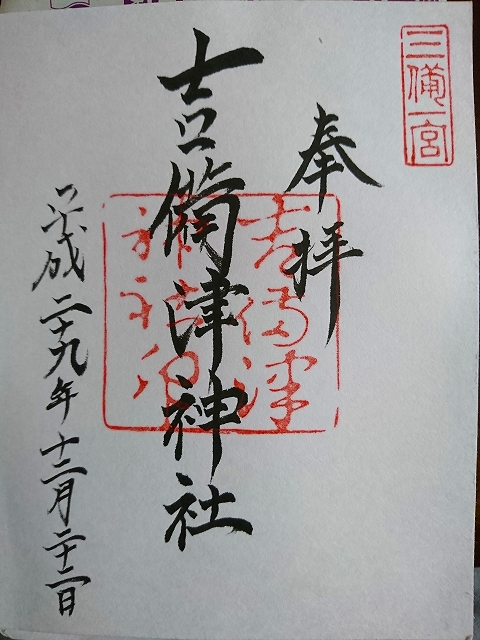 三備一宮
奉拝
吉備津神社
平成二十九年十二月二十二日